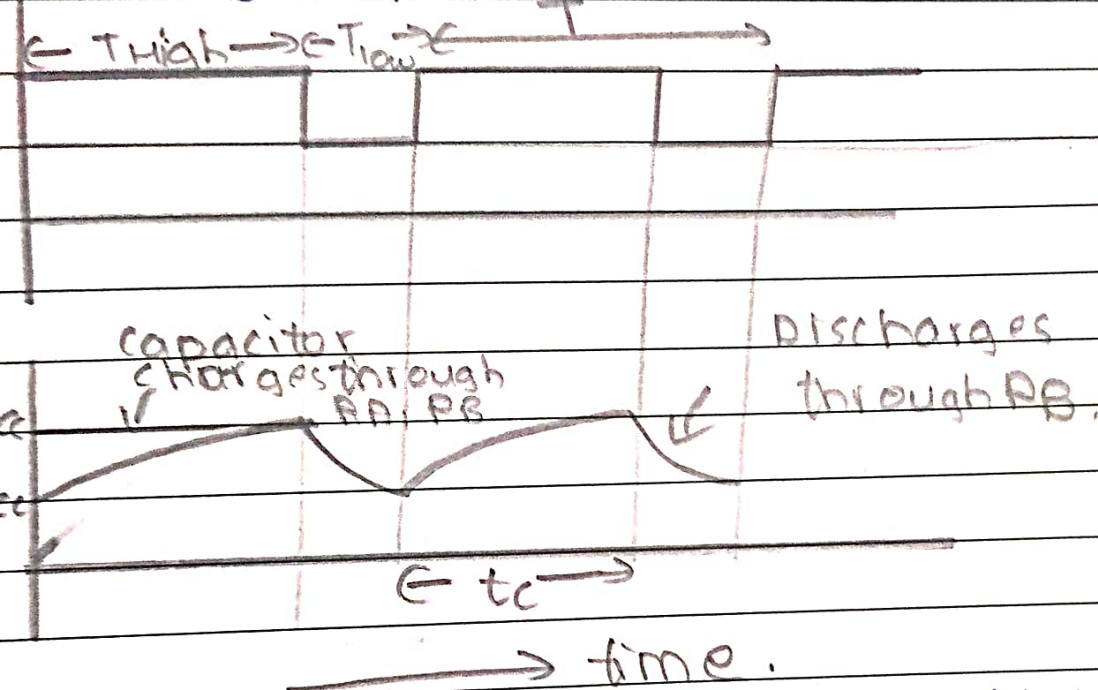 T
THigh Tlow
capacitor
charges through
RA, RB
Discharges
through RB.
cc
cc
tc
time.